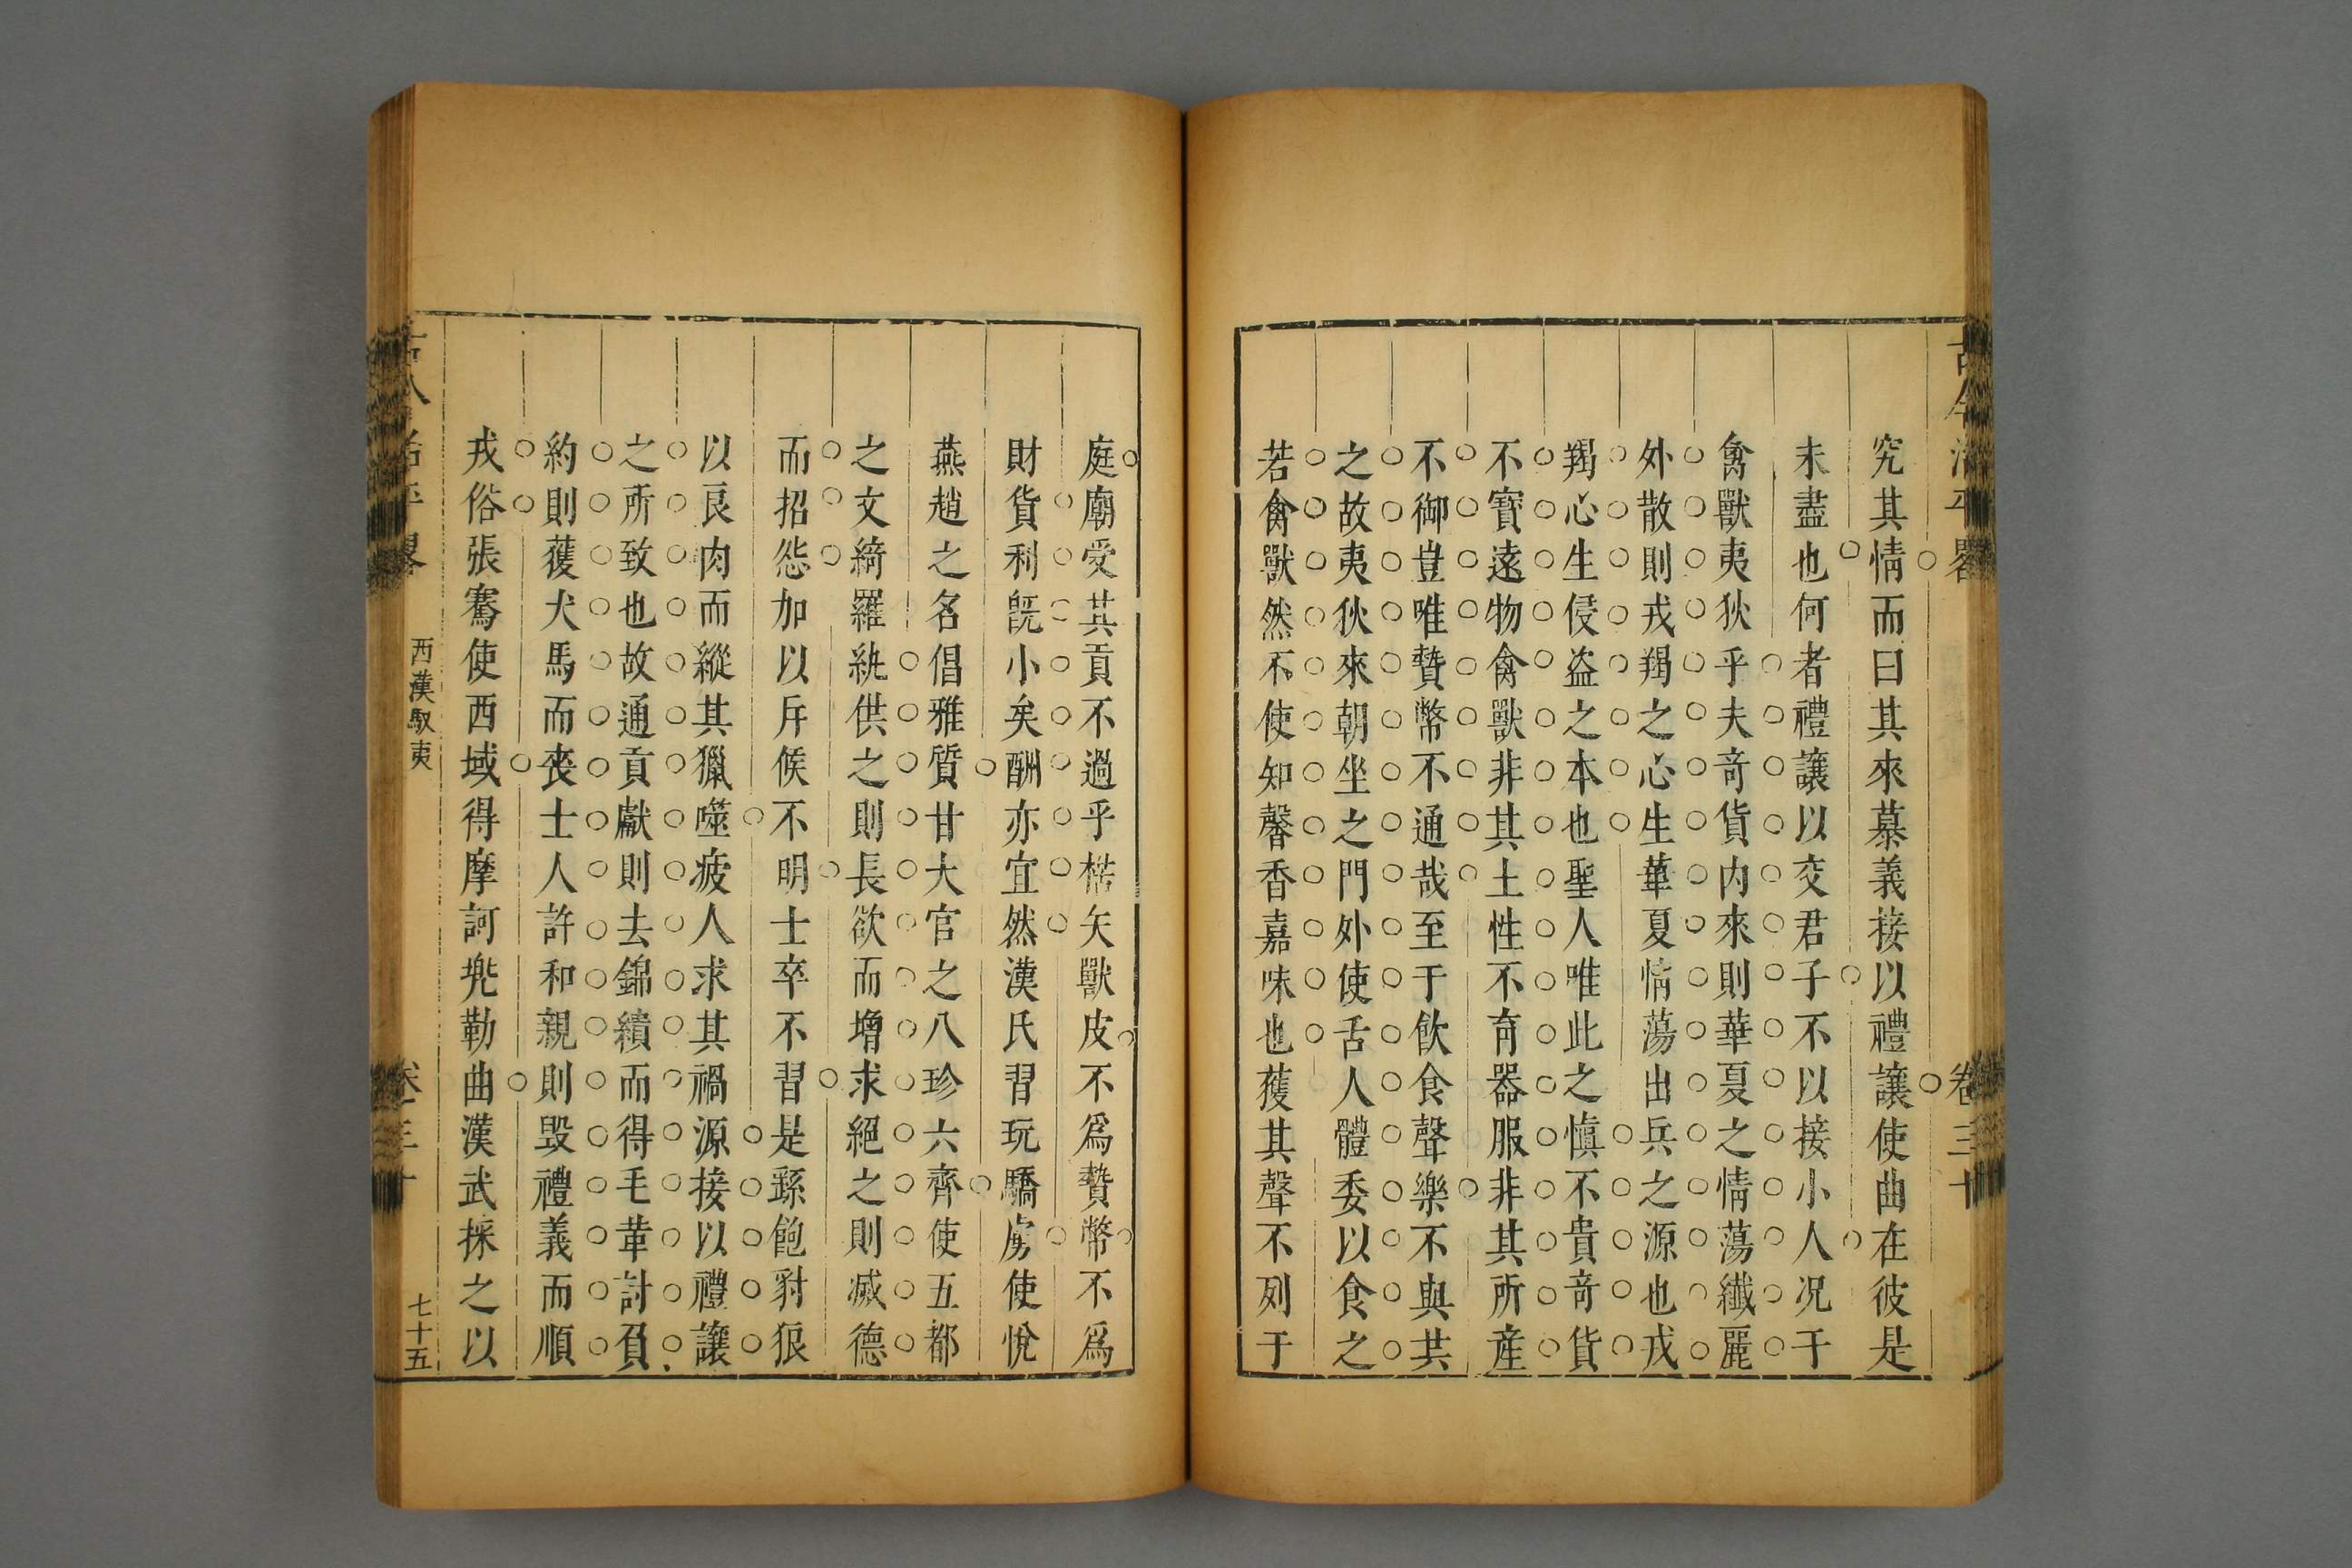 究其情而曰其來慕義接以禮讓使曲在彼是
未盡也何者禮讓以交君子不以接小人况于
禽獸夷狄乎夫竒貨内來則華夏之情蕩纎麗
外散則戎羯之心生華夏情蕩出兵之源也戎
羯心生侵盗之本也聖人唯此之慎不貴竒貨
不寳遠物禽獸非其土性不育器服非其所産
不御豈唯贄幣不通哉至于飲食聲樂不與共
之故夷狄來朝坐之門外使舌人體委以食之
若禽獸然不使知馨香嘉味也蒦其聲不列于
庭廟受其貢不過乎楛矢獸皮不爲贄幣不爲
財貨利旣小矣酬亦宜然漢氏習玩驕虜使悅
燕趙之名倡雅質甘大官之八珍六齊使五都
之文綺羅紈供之則長欲而增求絕之則滅德
而招怨加以斥候不明士卒不習是繇飽豺狼
以良肉而縱其獵噬疲人求其禍源接以禮讓
之所致也故通貢獻則去錦繢而得毛革討負
約則蒦犬馬而喪士人許和親則毁禮義而順
戎俗張騫使西域得摩訶兠勒曲漢武採之以
西漢馭夷
七十五